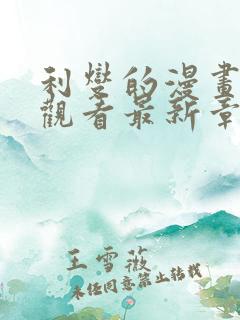 利變的漫畫
觀看最新章
王雪薇
未经同意禁止转载